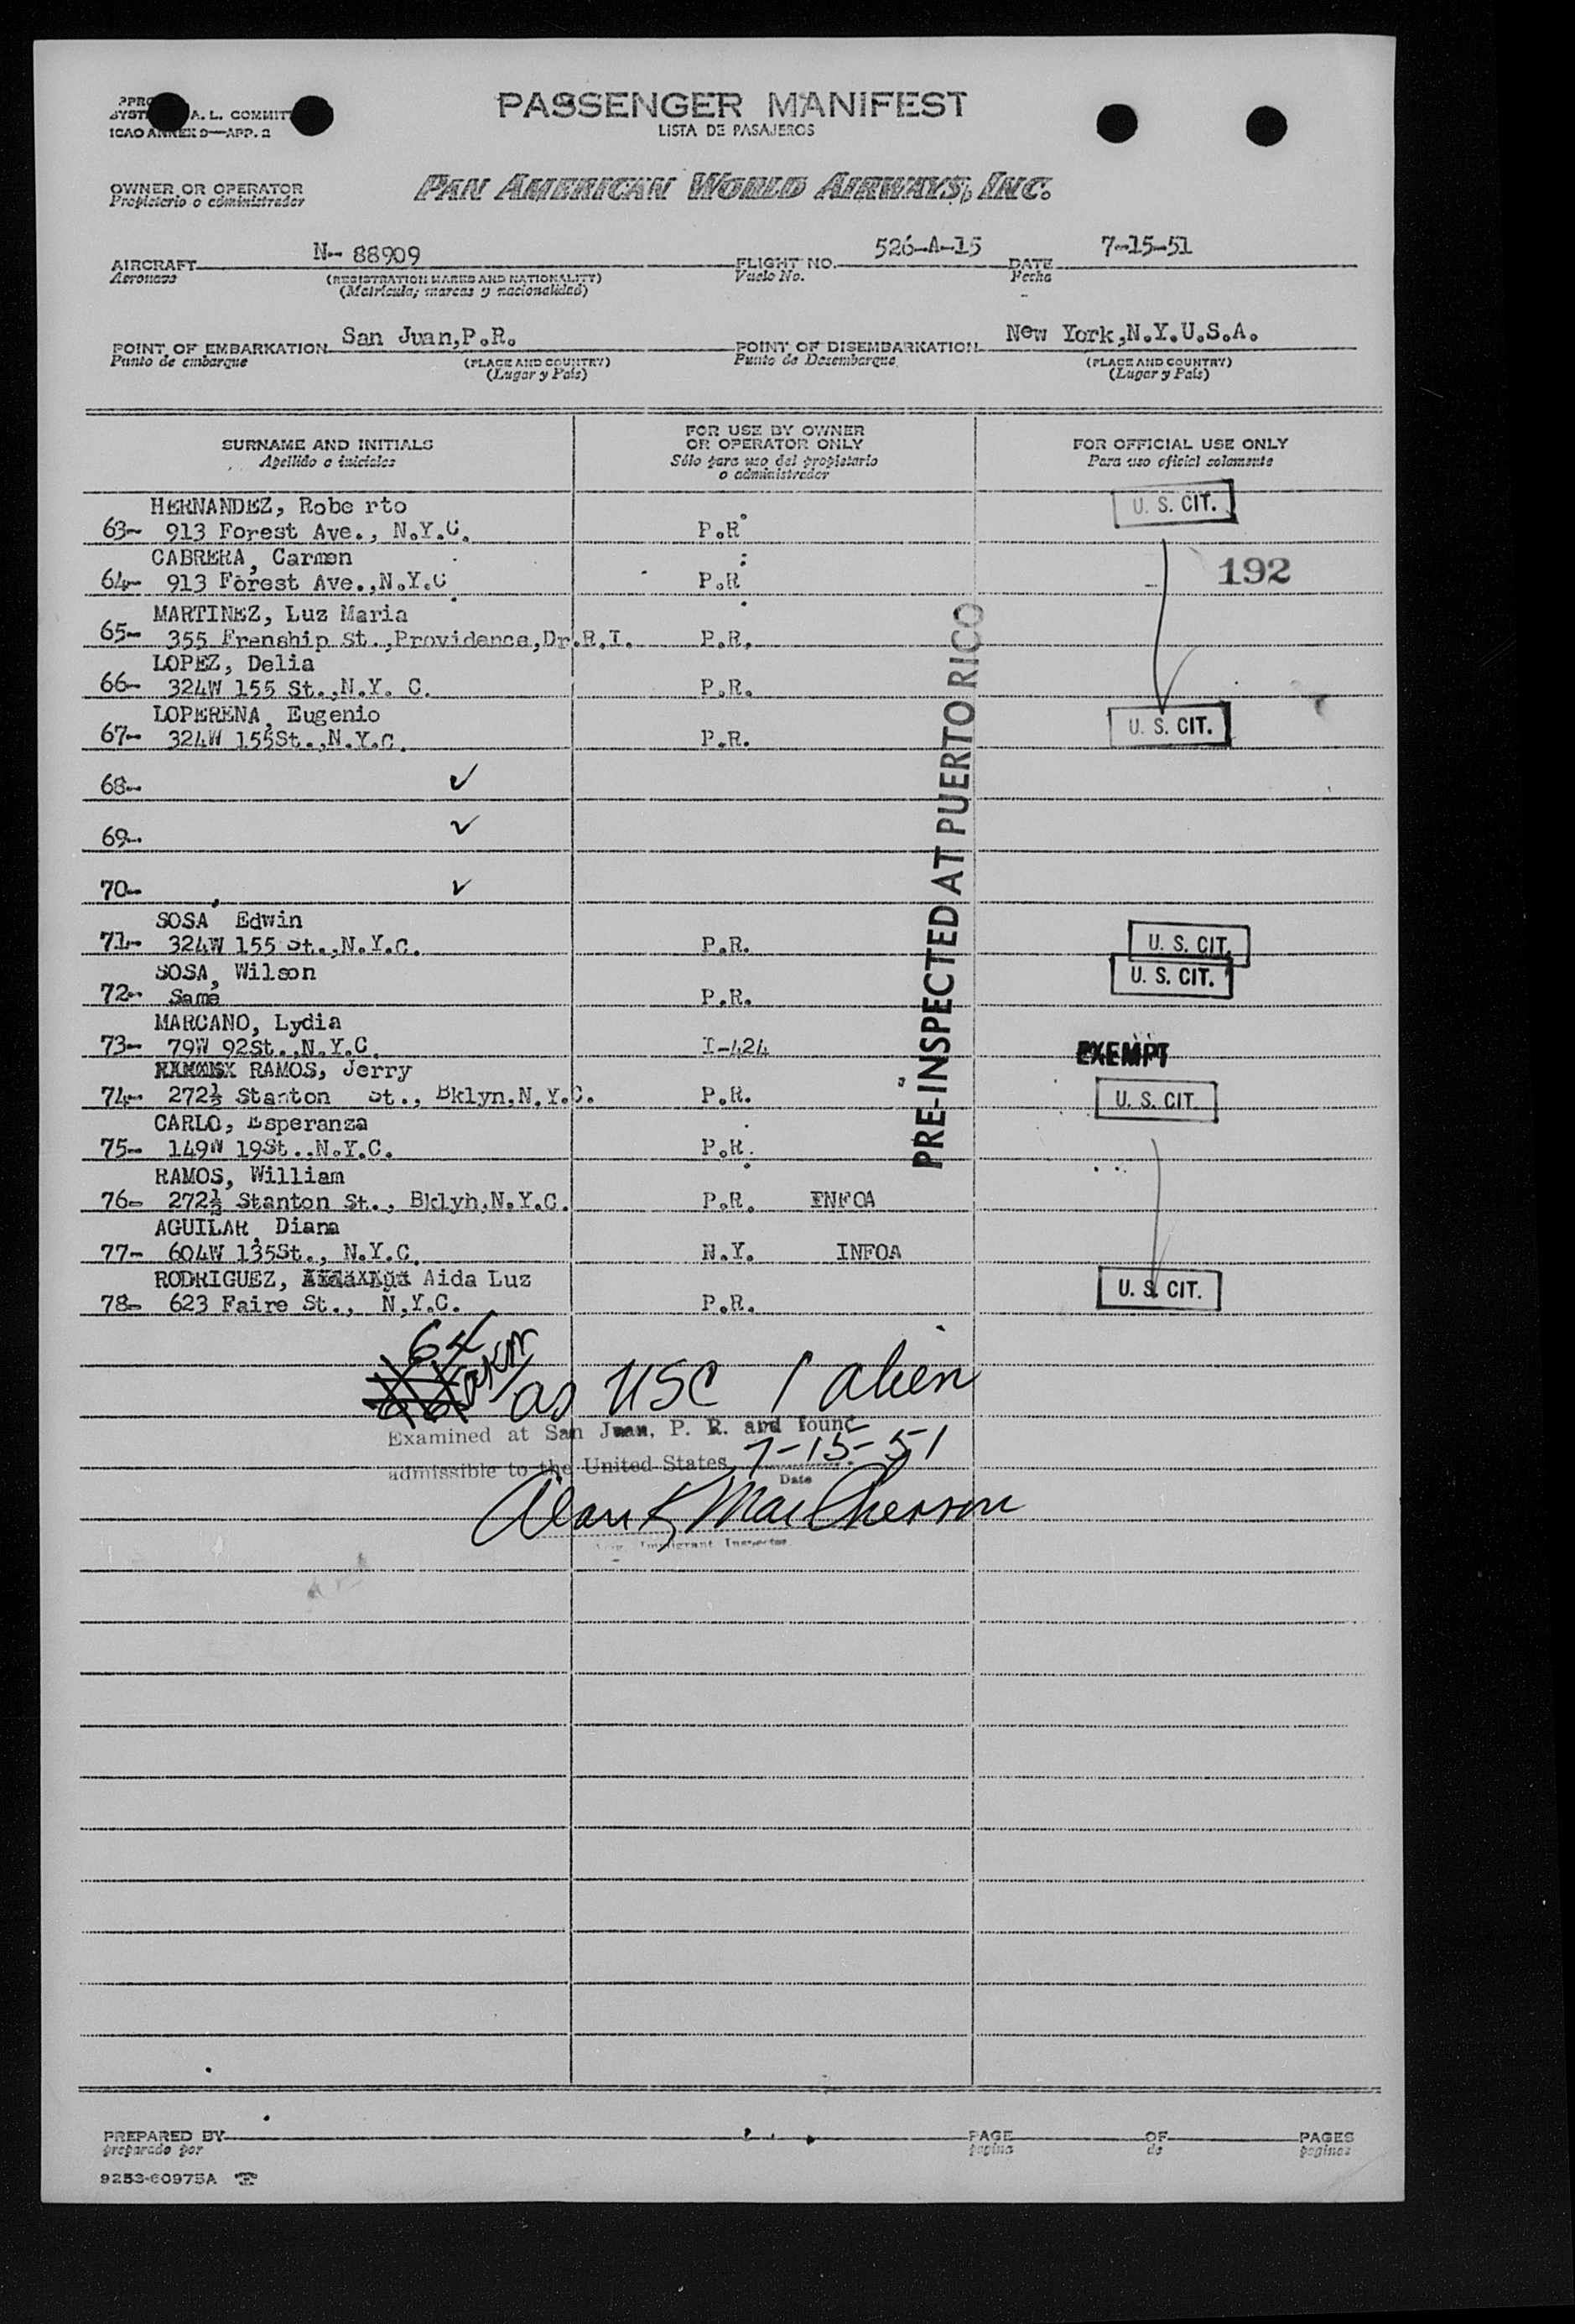 A. L. COMMIT
ICAO ANNEX 9—APP. 2
PASSENGER MANIFEST
LISTA DE PASAJEROS
OWNER OR OPERATOR
Propietario o administrador
PAN AMERICAN WORLD AIRWAYS, INC.
AIRCRAFT N-- 88909
Aeronave
(REGISTRATION MARKS AND NATIONALITY)
(Matrícula; marcas y nacionalidad)
FLIGHT NO. 526-A-15
Vuelo No.
DATE 7-15-51
Fecha
POINT OF EMBARKATION San Juan,P.R.
Punto de embarque
(PLACE AND COUNTRY)
(Lugar y País)
POINT OF DISEMBARKATION New York,N.Y.U.S.A.
Punto de Desembarque
(PLACE AND COUNTRY)
(Lugar y País)
SURNAME AND INITIALS
Apellido e iniciales
FOR USE BY OWNER
OR OPERATOR ONLY
Sólo para uso del propietario
o administrador
FOR OFFICIAL USE ONLY
Para uso oficial solamente
HERNANDEZ, Robe rto
U. S. CIT.
63- 913 Forest Ave., N.Y.C. P.R
CABRERA, Carmen
192
64- 913 Forest Ave.,N.Y.C P.R
MARTINEZ, Luz Maria
65- 355 Frenship St.,Providence,Dr.R.I. P.R.
LOPEZ, Delia
66- 324W 155 St.,N.Y. C. P.R.
LOPERENA, Eugenio
67- 324W 155St.,N.Y.C. P.R.
U. S. CIT.
68-
69-
70-
PRE-INSPECTED AT PUERTO RICO
SOSA, Edwin
71- 324W 155 St.,N.Y.C. P.R. U. S. CIT.
SOSA, Wilson
72- Same P.R. U. S. CIT.
MARCANO, Lydia
73- 79W 92St.,N.Y.C. I-424 EXEMPT
RAMOS, Jerry
74- 272½ Stanton St., Bklyn,N.Y.C. P.R. U. S. CIT.
CARLO, Esperanza
75- 149W 19St.,N.Y.C. P.R.
RAMOS, William
76- 272½ Stanton St., Bklyh,N.Y.C. P.R. INFOA
AGUILAR, Diana
77- 604W 135St., N.Y.C. N.Y. INFOA
RODRIGUEZ, Aida Luz
78- 623 Faire St., N.Y.C. P.R. U. S. CIT.
64
AKM
as USC 1 alien
Examined at San Juan, P. R. and found
admissible to the United States 7-15-51
Date
Alan K MacPherson
Immigrant Inspector
PREPARED BY
preparado por
PAGE OF PAGES
página de páginas
9253-60975A